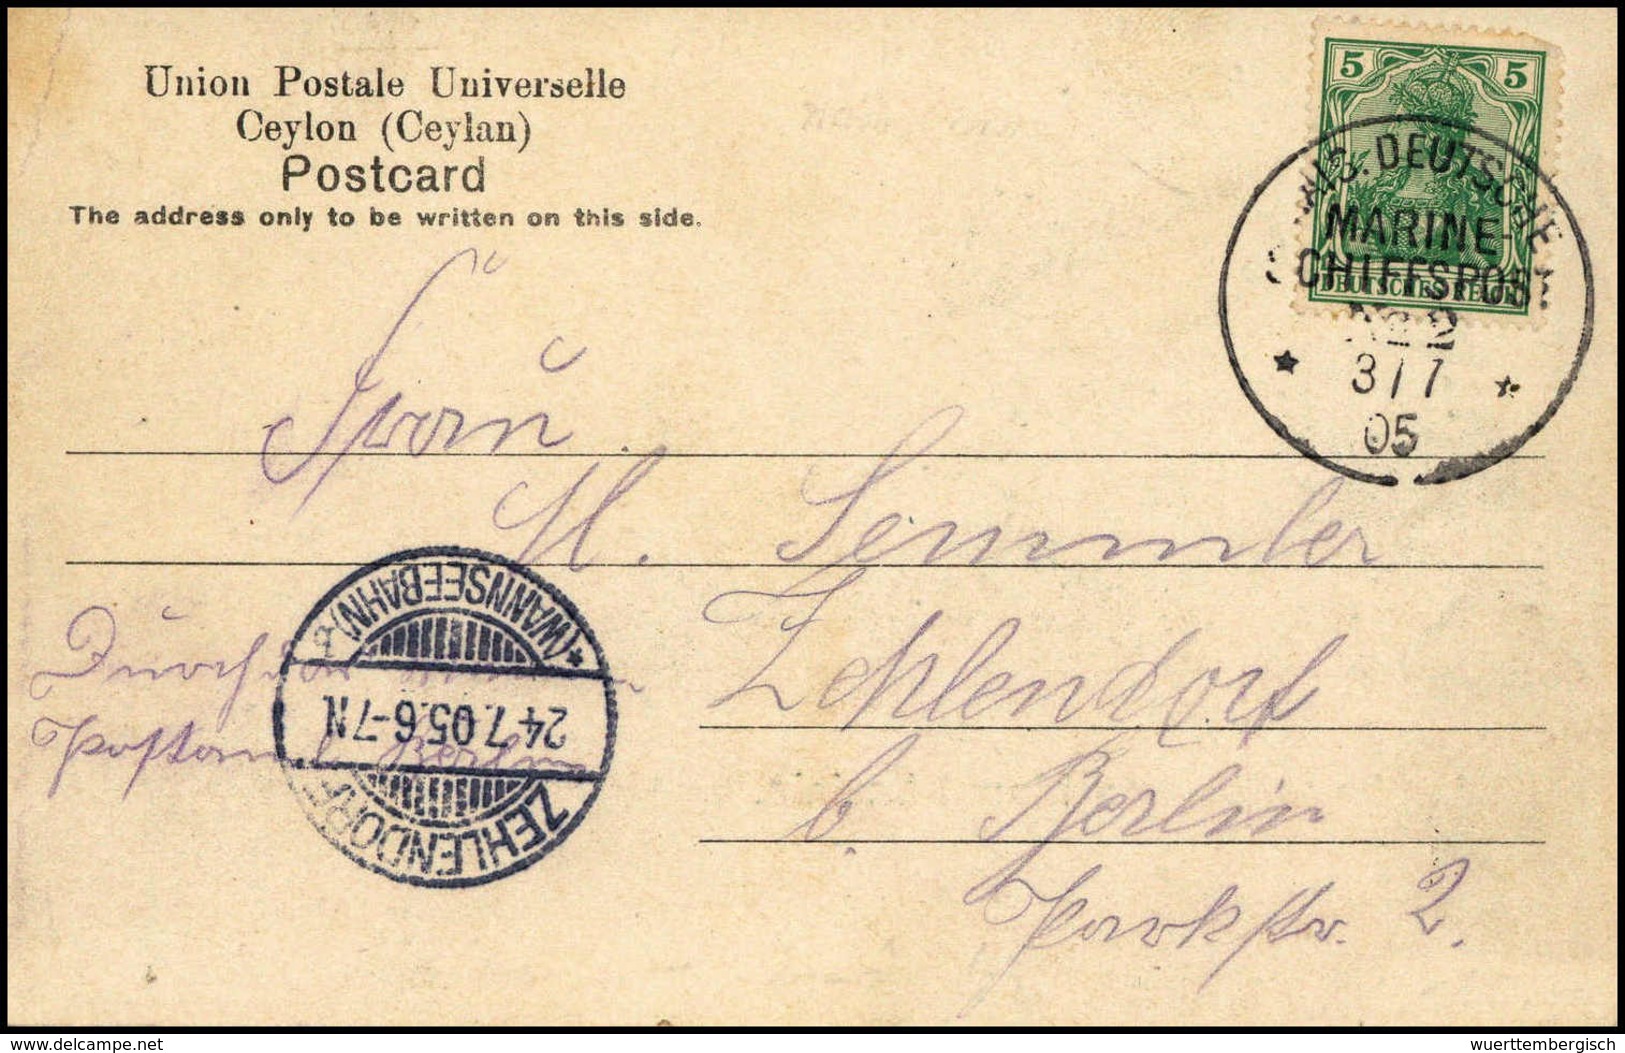 Union Postale Universelle
Ceylon (Ceylan)
Postcard
The address only to be written on this side.
5 5
DEUTSCHES REICH
KAIS. DEUTSCHE
MARINE-
SCHIFFSPOST
No 2
3/7
05
Frau
M. Semmler
Zehlendorf
b. Berlin
Parkstr. 2.
Durch das
Postamt Berlin
ZEHLENDORF
24.7.05.6-7N
*(WANNSEEBAHN) b
www.delcampe.net
wuerttembergisch